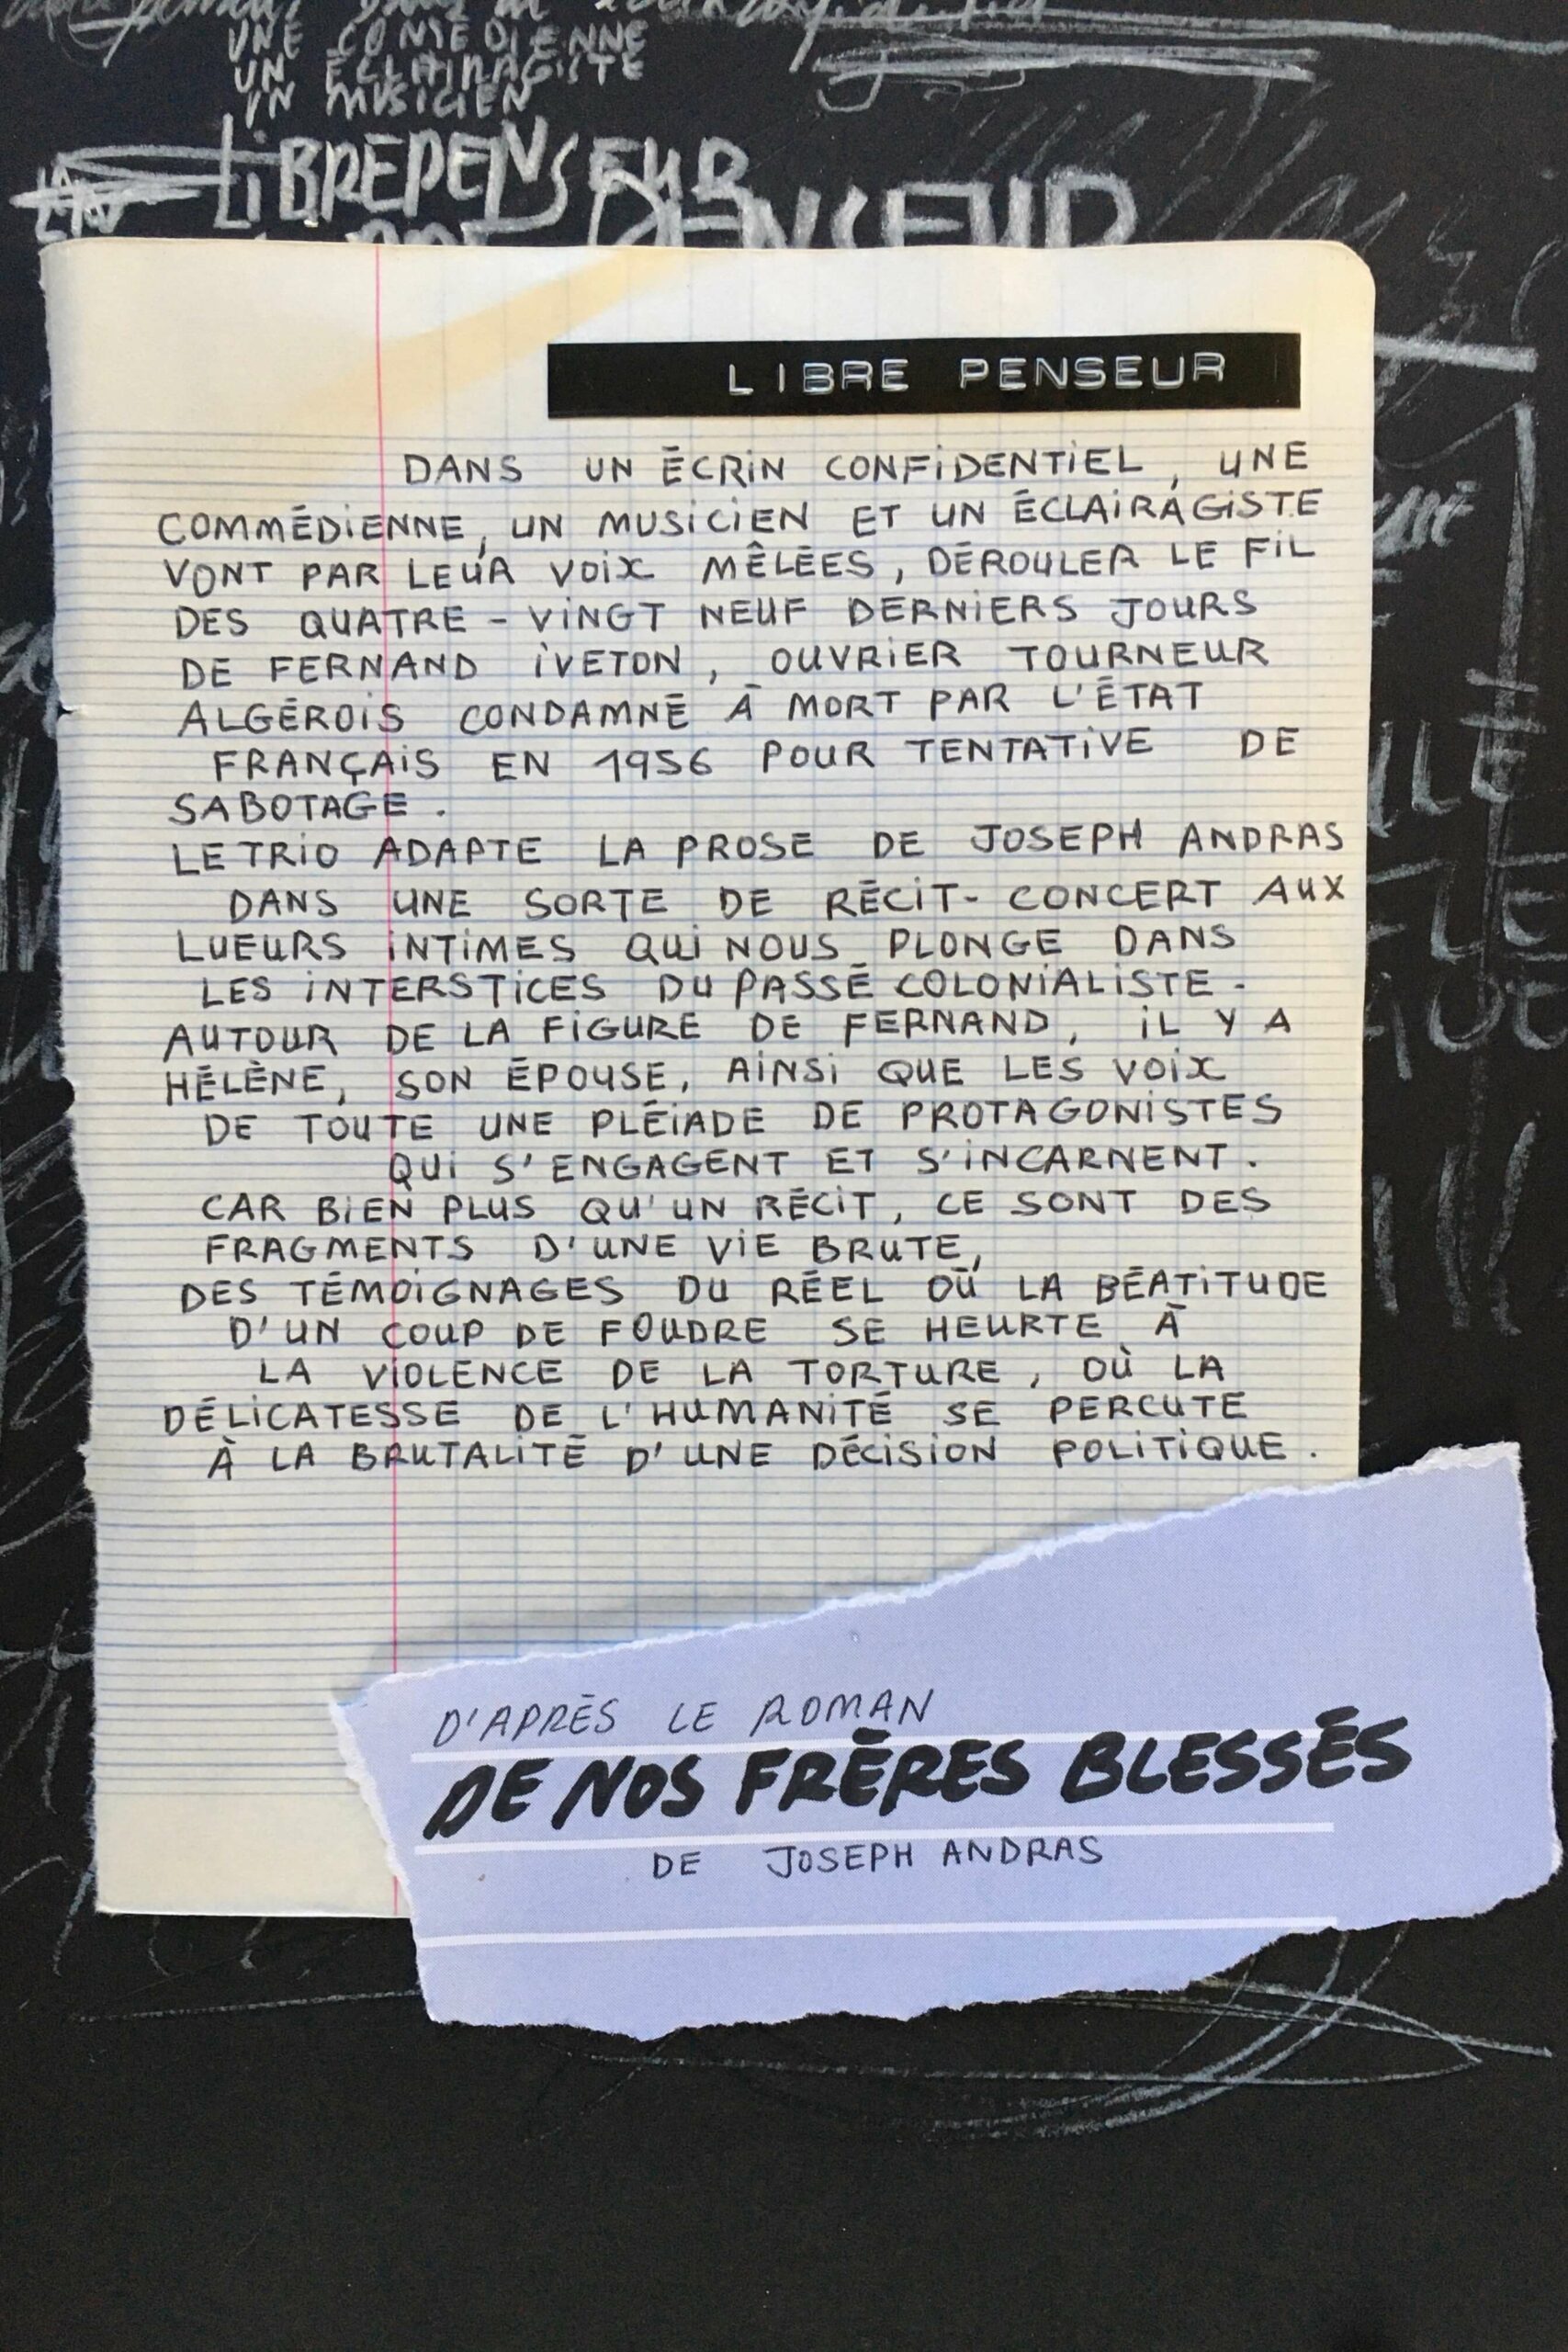 UNE COMEDIENNE
UN ÉCLAIRAGISTE
UN MUSICIEN
LIBREPENSEUR
PENSEUR
LIBRE PENSEUR
DANS UN ÉCRIN CONFIDENTIEL, UNE
COMMÉDIENNE, UN MUSICIEN ET UN ÉCLAIRAGISTE
VONT PAR LEUR VOIX MÊLÉES, DÉROULER LE FIL
DES QUATRE-VINGT NEUF DERNIERS JOURS
DE FERNAND IVETON, OUVRIER TOURNEUR
ALGÉROIS CONDAMNÉ À MORT PAR L'ÉTAT
FRANÇAIS EN 1956 POUR TENTATIVE DE
SABOTAGE.
LE TRIO ADAPTE LA PROSE DE JOSEPH ANDRAS
DANS UNE SORTE DE RÉCIT-CONCERT AUX
LUEURS INTIMES QUI NOUS PLONGE DANS
LES INTERSTICES DU PASSÉ COLONIALISTE -
AUTOUR DE LA FIGURE DE FERNAND, IL Y A
HÉLÈNE, SON ÉPOUSE, AINSI QUE LES VOIX
DE TOUTE UNE PLÉIADE DE PROTAGONISTES
QUI S'ENGAGENT ET S'INCARNENT.
CAR BIEN PLUS QU'UN RÉCIT, CE SONT DES
FRAGMENTS D'UNE VIE BRUTE,
DES TÉMOIGNAGES DU RÉEL OÙ LA BÉATITUDE
D'UN COUP DE FOUDRE SE HEURTE À
LA VIOLENCE DE LA TORTURE, OÙ LA
DÉLICATESSE DE L'HUMANITÉ SE PERCUTE
À LA BRUTALITÉ D'UNE DÉCISION POLITIQUE.
D'APRÈS LE ROMAN
DE NOS FRÈRES BLESSÉS
DE JOSEPH ANDRAS